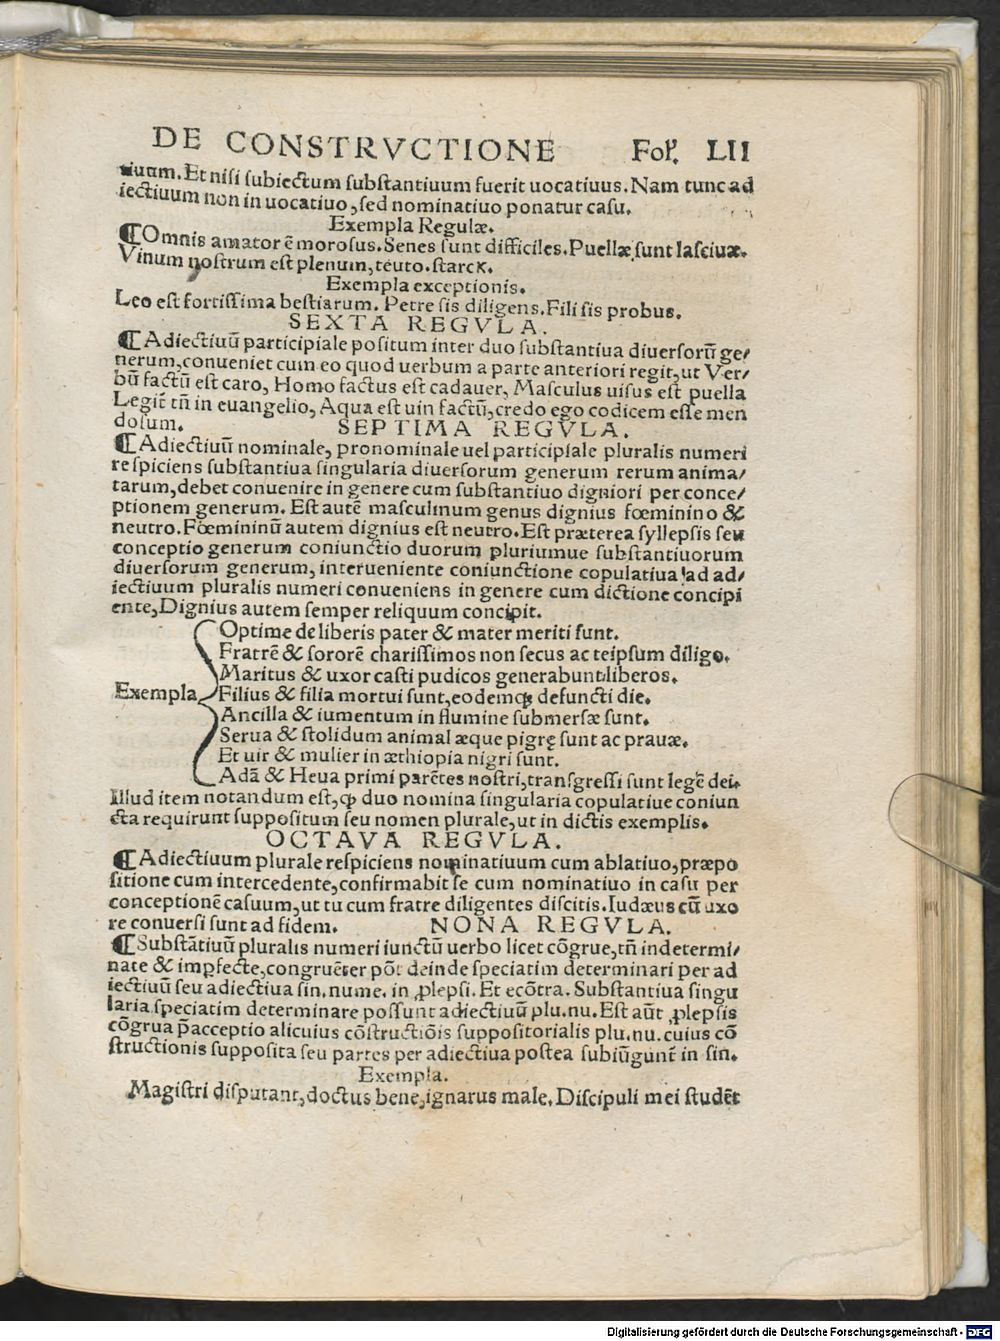 DE CONSTRVCTIONE Fol. LII
tiuum. Et nisi subiectum substantiuum fuerit uocatiuus. Nam tunc ad
iectiuum non in uocatiuo, sed nominatiuo ponatur casu.
Exempla Regulæ.
¶Omnis amator ē morosus. Senes sunt difficiles. Puellæ sunt lasciuæ.
Vinum nostrum est plenum, teuto. starck.
Exempla exceptionis.
Leo est fortissima bestiarum. Petre sis diligens. Fili sis probus.
SEXTA REGVLA.
¶Adiectiuū participiale positum inter duo substantiua diuersorū ge/
nerum, conueniet cum eo quod uerbum a parte anteriori regit, ut Ver/
bū factū est caro, Homo factus est cadauer, Masculus uisus est puella
Legit̄ tn̄ in euangelio, Aqua est uin factū, credo ego codicem esse men
dosum. SEPTIMA REGVLA.
¶Adiectiuū nominale, pronominale uel participiale pluralis numeri
respiciens substantiua singularia diuersorum generum rerum anima/
tarum, debet conuenire in genere cum substantiuo digniori per conce/
ptionem generum. Est autē masculinum genus dignius fœminino &
neutro. Fœmininū autem dignius est neutro. Est præterea syllepsis seu
conceptio generum coniunctio duorum pluriumue substantiuorum
diuersorum generum, interueniente coniunctione copulatiua ad ad/
iectiuum pluralis numeri conueniens in genere cum dictione concipi
ente, Dignius autem semper reliquum concipit.
Optime de liberis pater & mater meriti sunt.
Fratrē & sororē charissimos non secus ac teipsum diligo.
Maritus & uxor casti pudicos generabunt liberos.
Exempla Filius & filia mortui sunt, eodemq; defuncti die.
Ancilla & iumentum in flumine submersæ sunt.
Serua & stolidum animal æque pigrę sunt ac prauæ.
Et uir & mulier in æthiopia nigri sunt.
Adā & Heua primi parētes nostri, transgressi sunt legē dei.
Illud item notandum est, ꝙ duo nomina singularia copulatiue coniun
cta requirunt suppositum seu nomen plurale, ut in dictis exemplis.
OCTAVA REGVLA.
¶Adiectiuum plurale respiciens nominatiuum cum ablatiuo, præpo
sitione cum intercedente, confirmabit se cum nominatiuo in casu per
conceptionē casuum, ut tu cum fratre diligentes discitis. Iudæus cū uxo
re conuersi sunt ad fidem. NONA REGVLA.
¶Substātiuū pluralis numeri iunctū uerbo licet cōgrue, tn̄ indetermi/
nate & imꝑfecte, congruēter pōt deinde speciatim determinari per ad
iectiuū seu adiectiua sin. nume. in ꝓlepsi. Et ecōtra. Substantiua singu
laria speciatim determinare possunt adiectiuū plu. nu. Est aūt ꝓlepsis
cōgrua p̄acceptio alicuius cōstructiōis suppositorialis plu. nu. cuius cō
structionis supposita seu partes per adiectiua postea subiūgunt̄ in sin.
Exempla.
Magistri disputant, doctus bene, ignarus male. Discipuli mei studēt
Digitalisierung gefördert durch die Deutsche Forschungsgemeinschaft - DFG